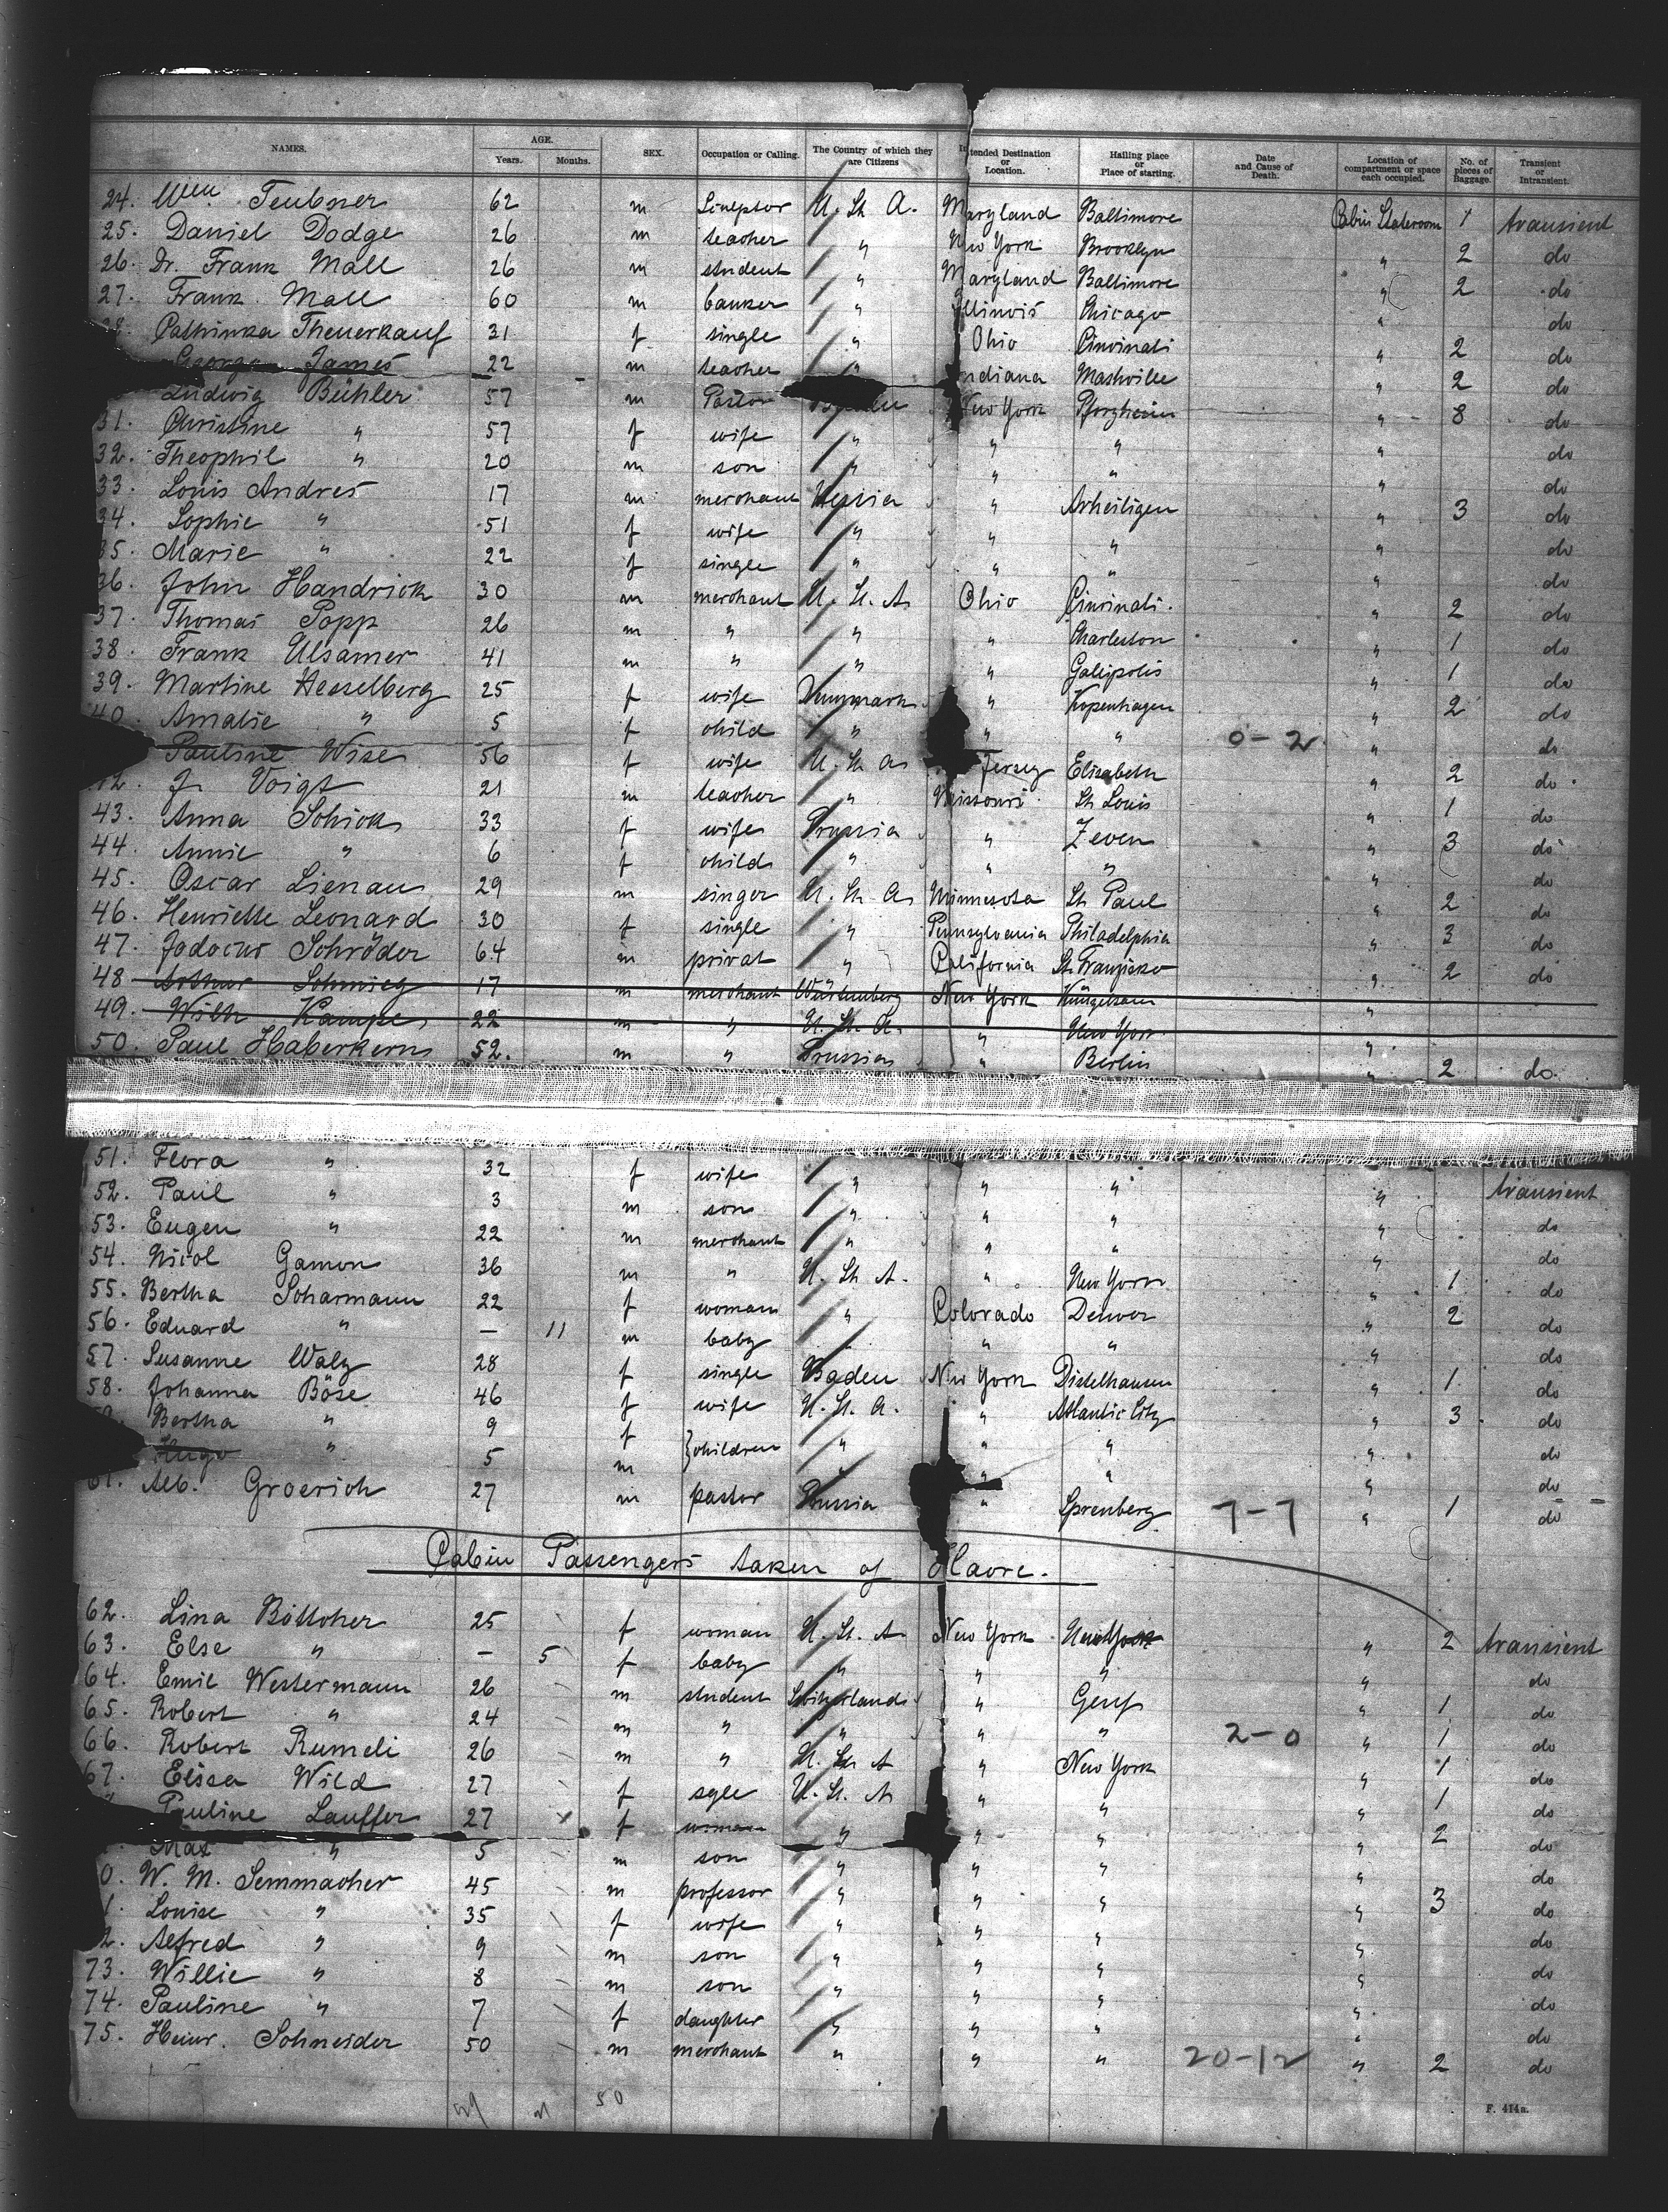 NAMES. AGE. Years. Months. SEX. Occupation or Calling. The Country of which they are Citizens Intended Destination or Location. Hailing place or Place of starting. Date and Cause of Death. Location of compartment or space each occupied. No. of pieces of Baggage. Transient or Intransient.
24. Wm Teubner 62 m Sculptor U. St. A. Maryland Baltimore Cabin Stateroom 1 transient
25. Daniel Dodge 26 m teacher " New York Brooklyn " 2 do
26. Dr. Frank Mall 26 m student " Maryland Baltimore " 2 do
27. Frank Mall 60 m banker " Illinois Chicago " do
28. Cathinka Theuerkauf 31 f single " Ohio Cincinati " 2 do
George James 22 m teacher " Indiana Mashville " 2 do
Ludwig Bühler 57 m Pastor New York Pforzheim " 8 do
31. Christine " 57 f wife " " " " do
32. Theophil " 20 m son " " " " do
33. Louis Andres 17 m merchant Hessia " Arheiligen " 3 do
34. Sophie " 51 f wife " " " " do
35. Marie " 22 f single " " " " do
36. John Handrich 30 m merchant U. St. A. Ohio Cincinati. " 2 do
37. Thomas Popp 26 m " " " Charleston " 1 do
38. Frank Ulsamer 41 m " " " Galipolis " 1 do
39. Martine Hesselberg 25 f wife Dennmark " Kopenhagen " 2 do
40. Amalie " 5 f child " " " 0-2 " do
Pauline Wise 56 f wife U. St. A. Jersey Elisabeth " 2 do
42. J. Voigt 21 m teacher " Missouri St. Louis " 1 do
43. Anna Schick 33 f wife Prussia " Zeven " 3 do
44. Annie " 6 f child " " " " do
45. Oscar Lienau 29 m singer U. St. A. Minnesota St. Paul " 2 do
46. Henriette Leonard 30 f single " Pennsylvania Philadelphia " 3 do
47. Jodocus Schröder 64 m privat " California St. Franzisko " 2 do
48 Arthur Schmieg 17 m merchant Würtemberg New York Künzelsau "
49. Wilh. Kampe 22 m " U. St. A. " New York "
50. Paul Haberkern 52. m " Prussia " Berlin " 2 do.
51. Flora " 32 f wife " " " " transient
52. Paul " 3 m son " " " " do
53. Eugen " 22 m merchant " " " " do
54. Nicol Gamon 36 m " U. St. A. " New York " 1 do
55. Bertha Scharmann 22 f woman " Colorado Denver " 2 do
56. Eduard " — 11 m baby " " " " do
57. Susanne Walz 28 f single Baden New York Distelhausen " 1 do
58. Johanna Böse 46 f wife U. St. A. " Atlantic City " 3 do
Bertha " 9 f } children " " " " do
Hugo " 5 m " " " " do
61. Alb. Groerich 27 m pastor Prussia " Sprenberg 7-7 " 1 do
Cabin Passengers taken of Havre.
62. Lina Böttcher 25 f woman U. St. A New York New York " 2 transient
63. Else " — 5 f baby " " " " do
64. Emil Westermann 26 m student Switzerland " Genf " 1 do
65. Robert " 24 m " " " " 2-0 " 1 do
66. Robert Rumeli 26 m " U. St. A " New York " 1 do
67. Elisa Wild 27 f sgle U. St. A " " " 1 do
Pauline Lauffer 27 f woman " " " " 2 do
Max " 5 m son " " " " do
0. W. M. Semmacher 45 m professor " " " " 3 do
1. Louise " 35 f wife " " " " do
2. Alfred " 9 m son " " " " do
73. Willie " 8 m son " " " " do
74. Pauline " 7 f daughter " " " " do
75. Heinr. Schneider 50 m merchant " " " 20-12 " 2 do
50
F. 414a.